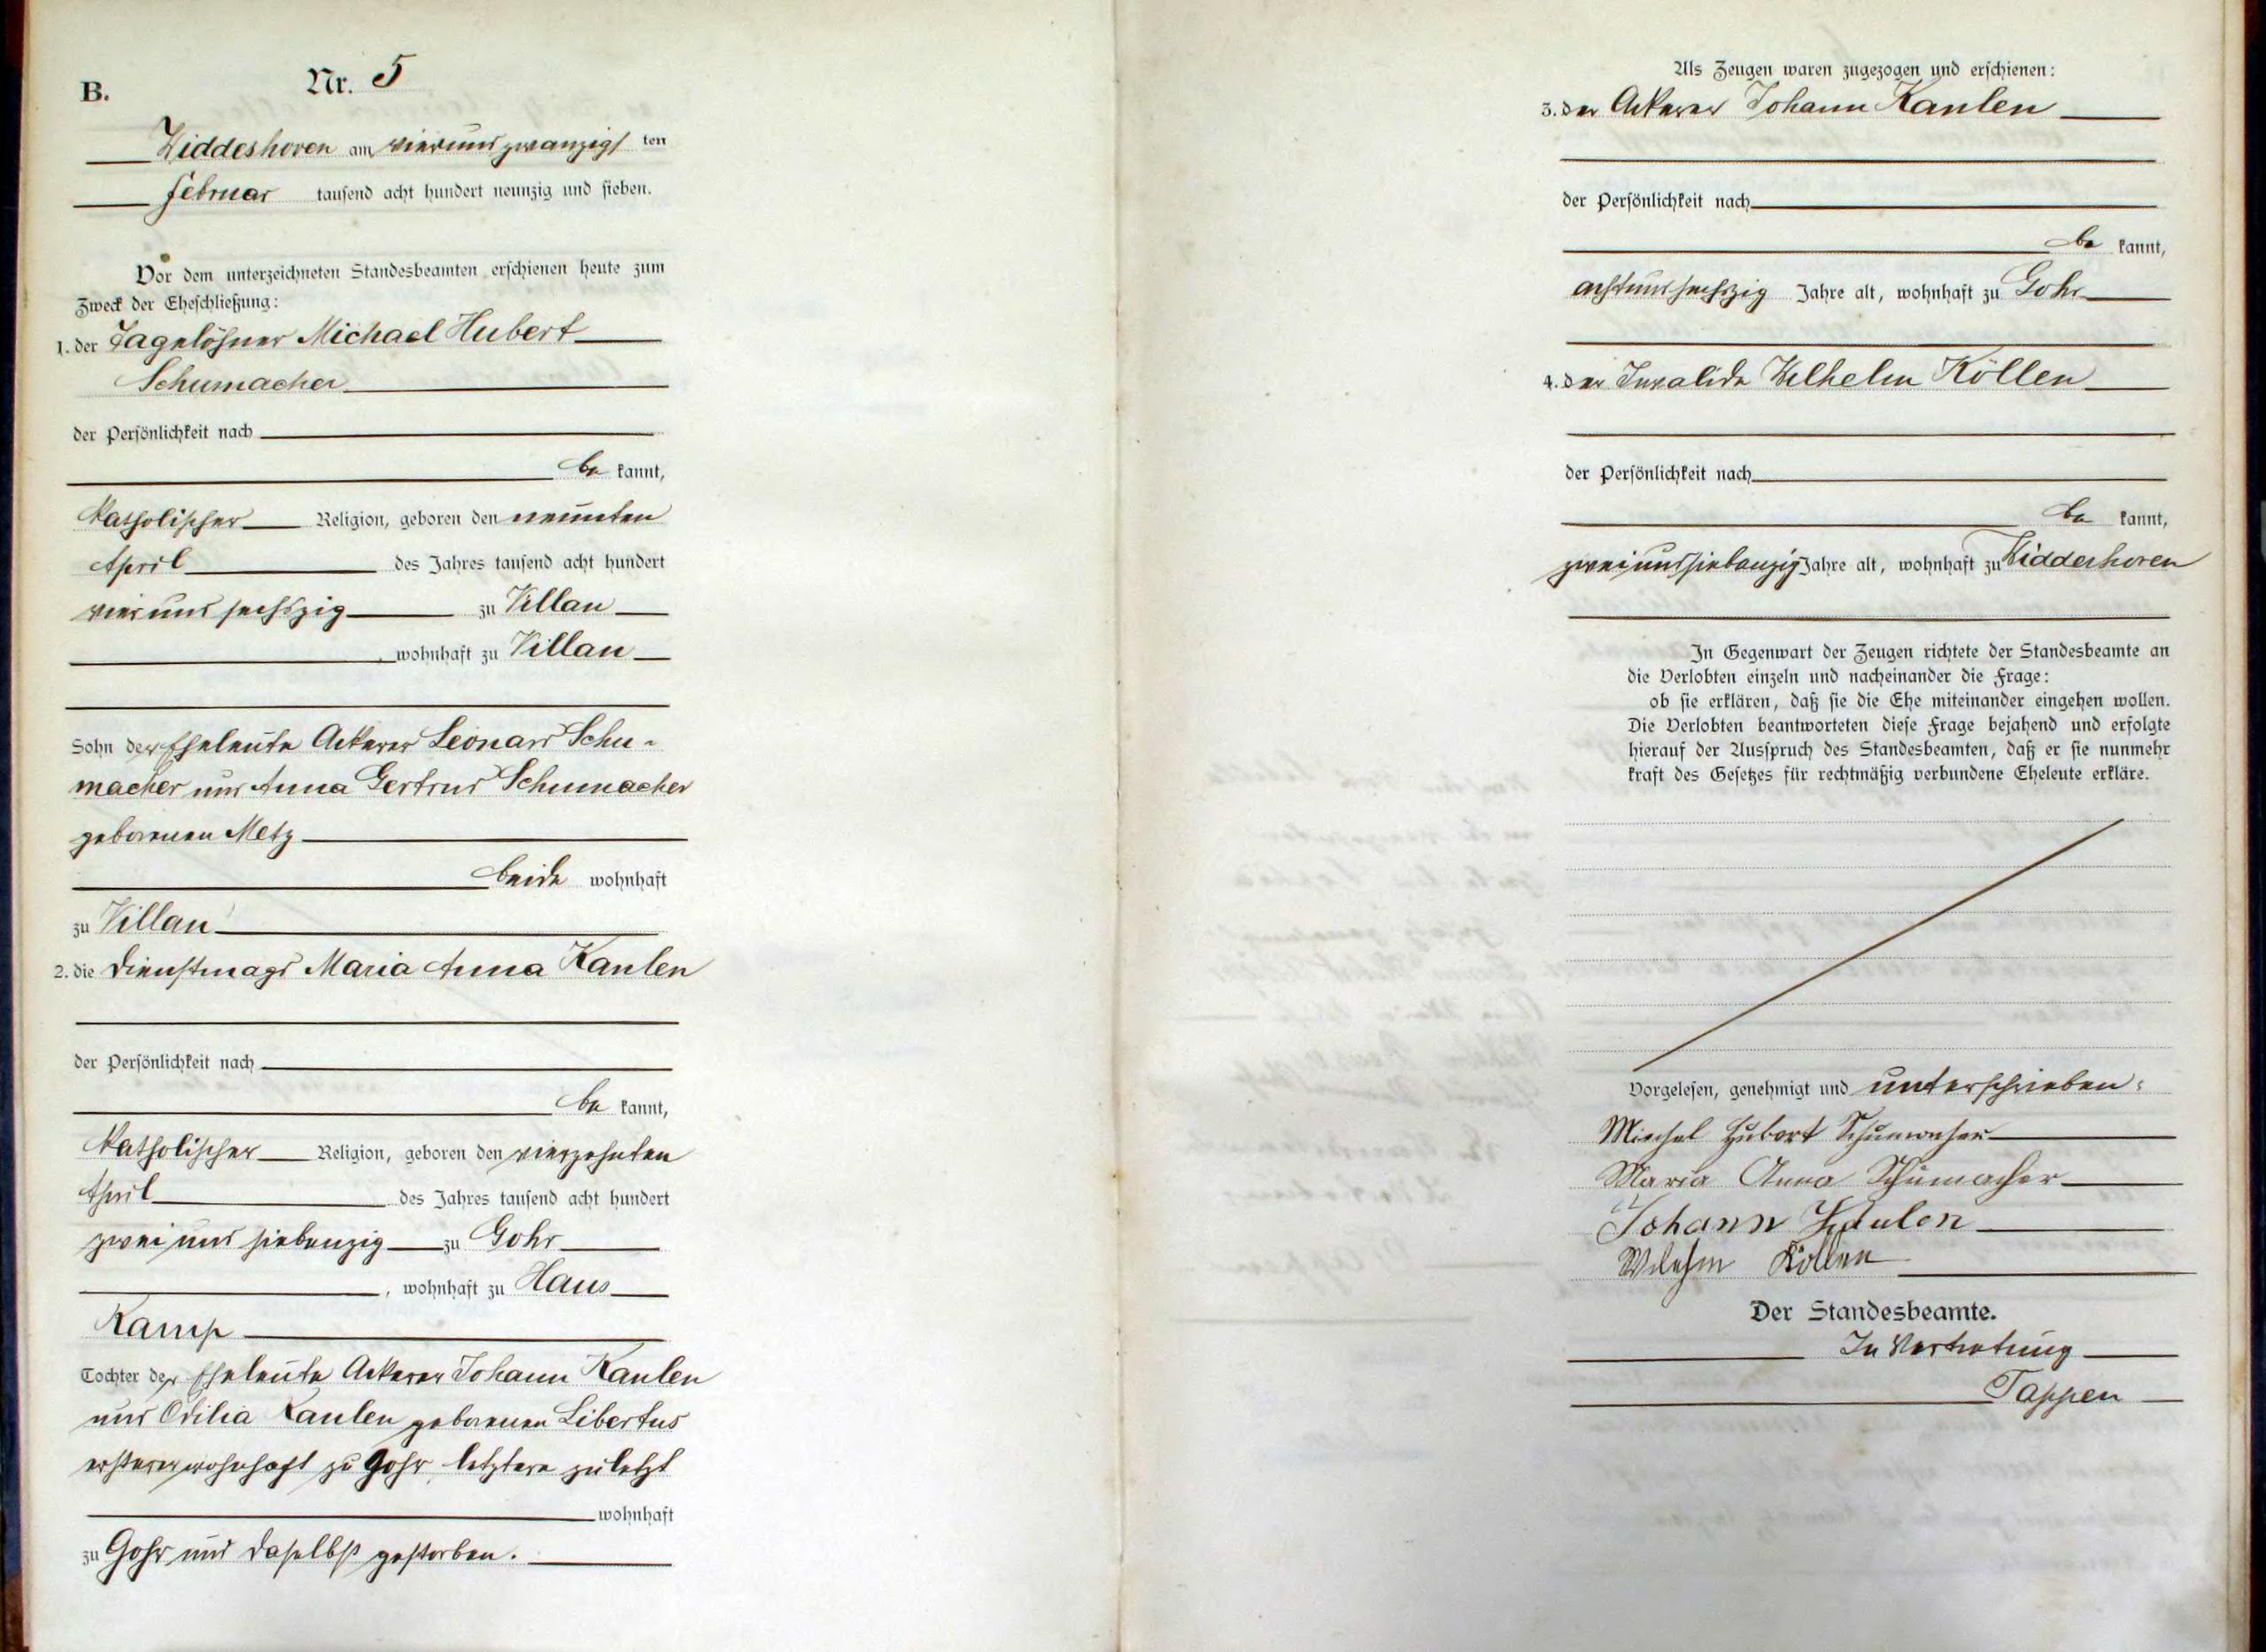 B.
Nr. 5
Widdeshoven am vierundzwanzigsten
Februar tausend acht hundert neunzig und sieben.
Vor dem unterzeichneten Standesbeamten erschienen heute zum
Zweck der Eheschließung:
1. der Tagelöhner Michael Hubert
Schumacher
der Persönlichkeit nach
be kannt,
katholischer Religion, geboren den neunten
April des Jahres tausend acht hundert
vier und sechszig zu Villau
wohnhaft zu Villau
Sohn der Eheleute Ackerer Leonard Schu-
macher und Anna Gertrud Schumacher
geborenen Metz
beide wohnhaft
zu Villau
2. die Dienstmagd Maria Anna Kaulen
der Persönlichkeit nach
be kannt,
katholischer Religion, geboren den vierzehnten
April des Jahres tausend acht hundert
zwei und siebenzig zu Gohr
, wohnhaft zu Haus
Kamp
Tochter der Eheleute Ackerer Johann Kaulen
und Odilia Kaulen geborenen Libertus
ersterer wohnhaft zu Gohr, letztere zuletzt
wohnhaft
zu Gohr und daselbst gestorben.
Als Zeugen waren zugezogen und erschienen:
3. der Ackerer Johann Kaulen
der Persönlichkeit nach
be kannt,
achtundsechszig Jahre alt, wohnhaft zu Gohr
4. der Invalide Wilhelm Köllen
der Persönlichkeit nach
be kannt,
zweiundsiebenzig Jahre alt, wohnhaft zu Widdeshoven
In Gegenwart der Zeugen richtete der Standesbeamte an
die Verlobten einzeln und nacheinander die Frage:
ob sie erklären, daß sie die Ehe miteinander eingehen wollen.
Die Verlobten beantworteten diese Frage bejahend und erfolgte
hierauf der Ausspruch des Standesbeamten, daß er sie nunmehr
kraft des Gesetzes für rechtmäßig verbundene Eheleute erkläre.
Vorgelesen, genehmigt und unterschrieben:
Michael Hubert Schumacher
Maria Anna Schumacher
Johann Kaulen
Wilehm Köllen
Der Standesbeamte.
In Vertretung
Tappen